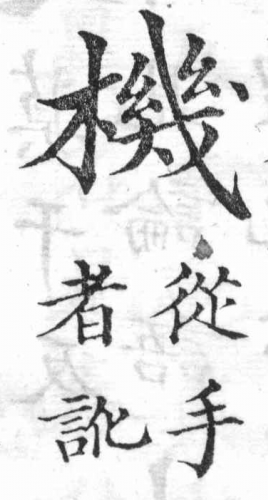 機
從手
者訛